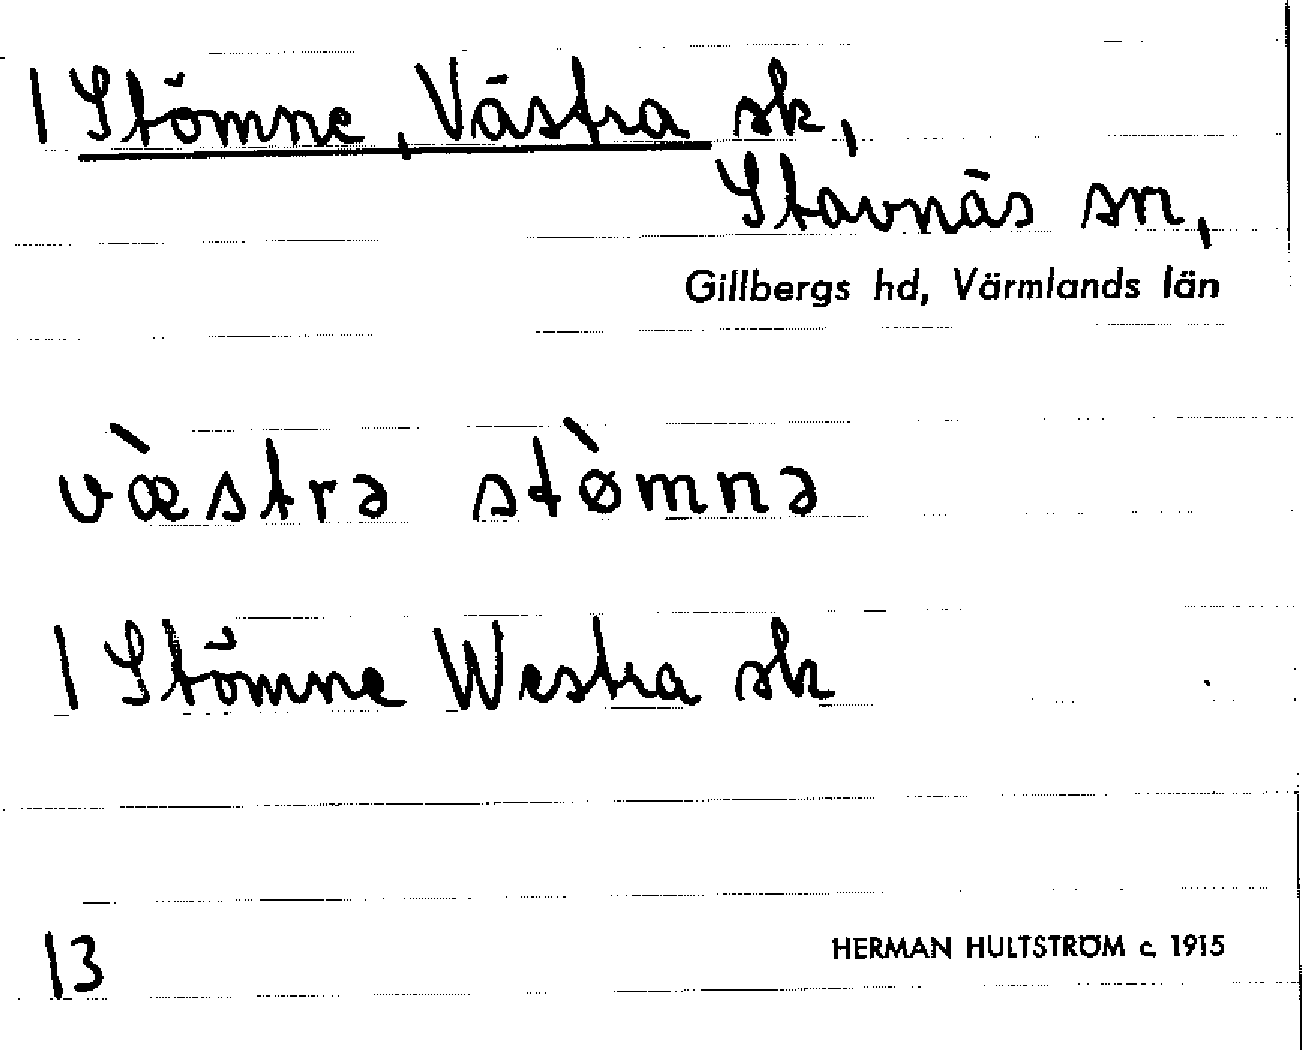 1 Stömne, Västra sk,
Stavnäs sn,
Gillbergs hd, Värmlands län
væ̀strə stø̀mnə
1 Stömne Westra sk
13
HERMAN HULTSTRÖM c. 1915